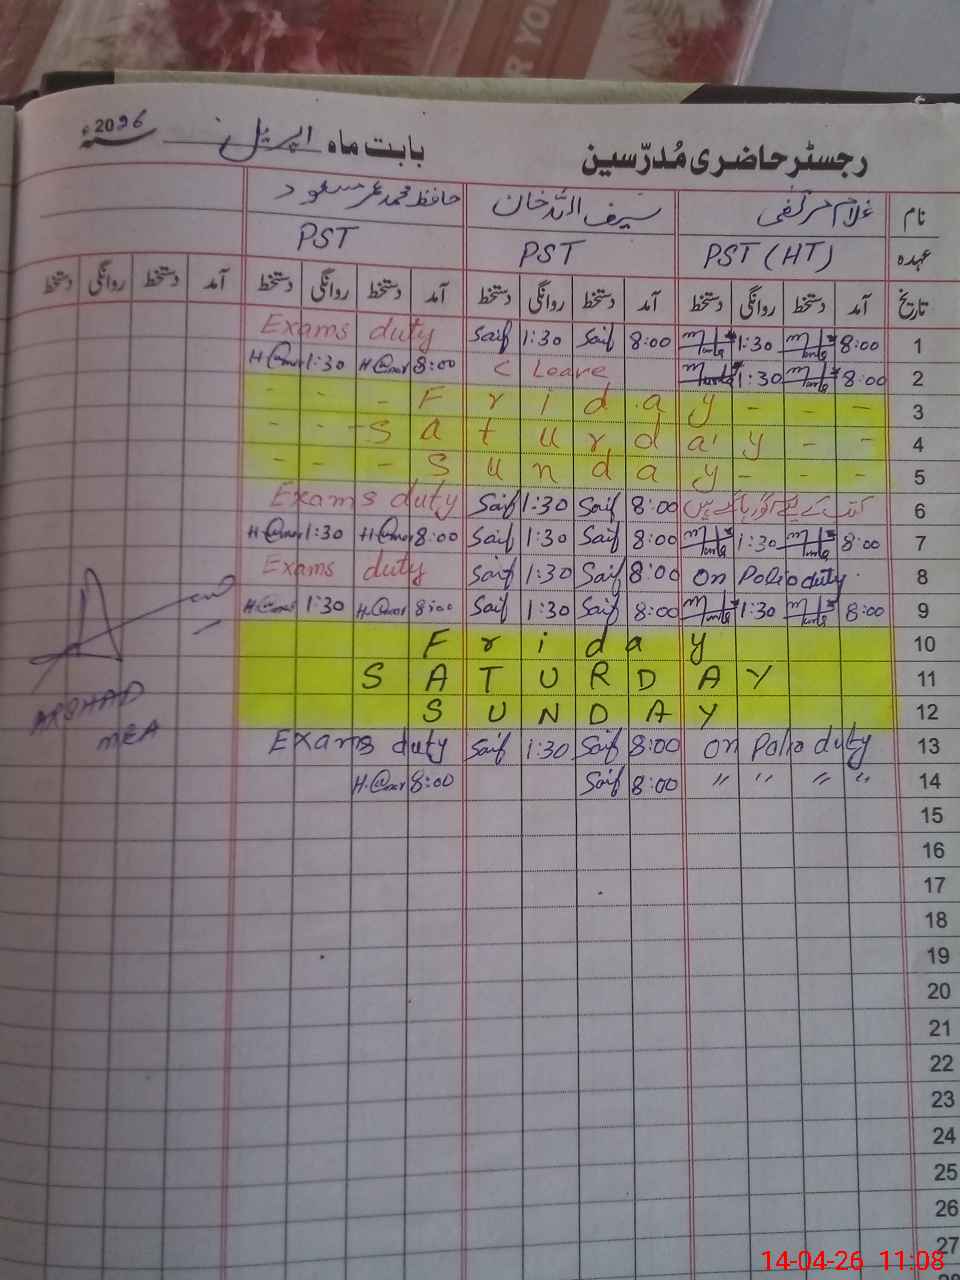 رجسٹر حاضری مُدرّسین بابت ماہ اپریل سنہ 2026ء
نام غلام مرتضی سیف اللہ خان حافظ محمد عمر مسعود
عہدہ PST (HT) PST PST
تاریخ آمد دستخط روانگی دستخط آمد دستخط روانگی دستخط آمد دستخط روانگی دستخط آمد دستخط روانگی دستخط
1 8:00 1:30 8:00 Saif 1:30 Saif Exams duty
2 8:00 1:30 C Leave 8:00 1:30
3 Friday
4 Saturday
5 Sunday
6 8:00 Saif 1:30 Saif Exams duty
7 8:00 1:30 8:00 Saif 1:30 Saif 8:00 1:30
8 On Polio duty 8:00 Saif 1:30 Saif Exams duty
9 8:00 1:30 8:00 Saif 1:30 Saif 8:00 1:30
10 Friday
11 SATURDAY
12 SUNDAY
13 On Polio duty 8:00 Saif 1:30 Saif Exams duty
14 〃 〃 〃 〃 8:00 Saif 8:00
ARSHAD
MEA
15
16
17
18
19
20
21
22
23
24
25
26
27
14-04-26 11:08